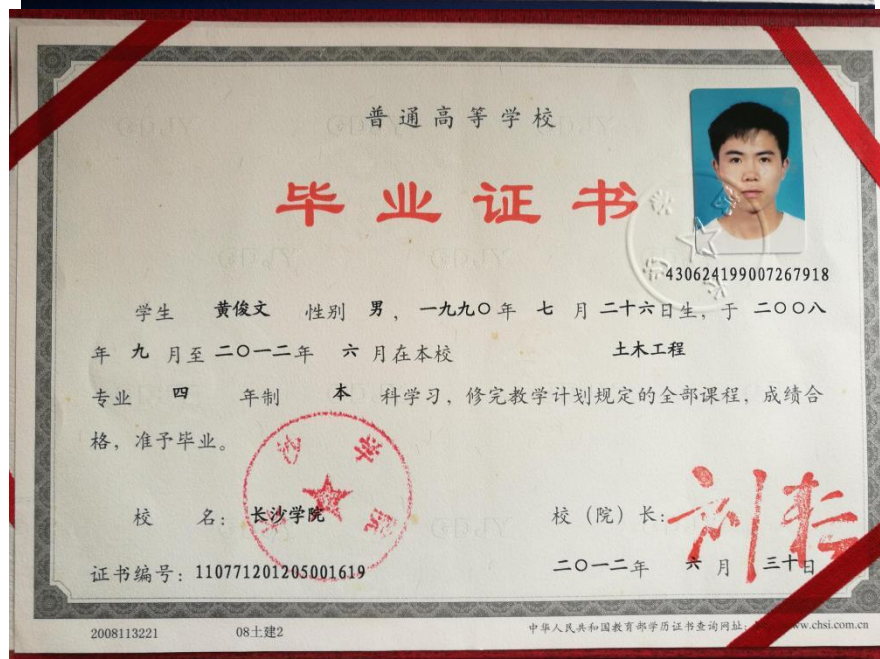 普通高等学校
毕业证书
430624199007267918
学生 黄俊文 性别 男，一九九〇年 七 月 二十六日生，于 二〇〇八
年 九 月至 二〇一二年 六 月在本校 土木工程
专业 四 年制 本 科学习，修完教学计划规定的全部课程，成绩合
格，准予毕业。
长沙学院
校 名：长沙学院 校（院）长：
证书编号：110771201205001619 二〇一二年 六 月 三十日
2008113221 08土建2 中华人民共和国教育部学历证书查询网址：www.chsi.com.cn